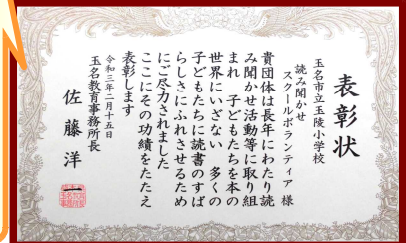 表彰状
玉名市立玉陵小学校
読み聞かせ
スクールボランティア 様
貴団体は長年にわたり読
み聞かせ活動等に取り組
まれ 子どもたちを本の
世界にいざない 多くの
子どもたちに読書のすば
らしさにふれさせるため
にご尽力されました
ここにその功績をたたえ
表彰します
令和三年二月十五日
玉名教育事務所長
佐藤洋一